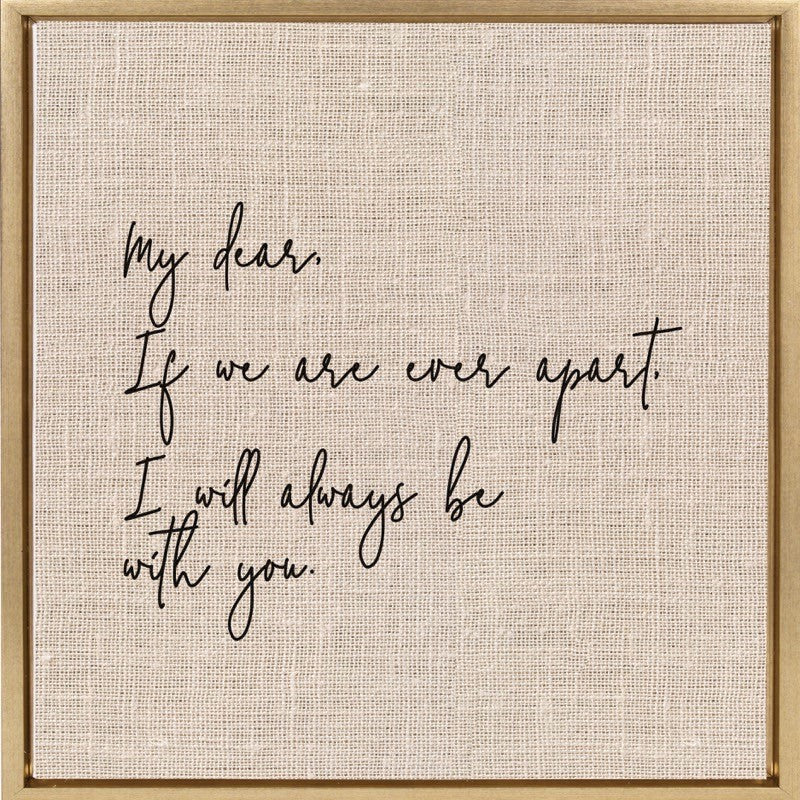 My dear,
If we are ever apart,
I will always be
with you.